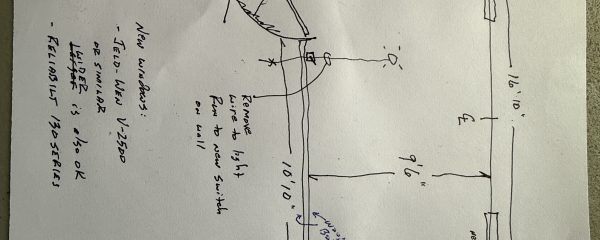 New windows:
- JELD-WEN V-2500
OR SIMILAR
WIDER is also OK
- RELIABILT 150 SERIES
Remove
wire to light
Run to new switch
on wall
10'10"
9'6"
16'10"
CL